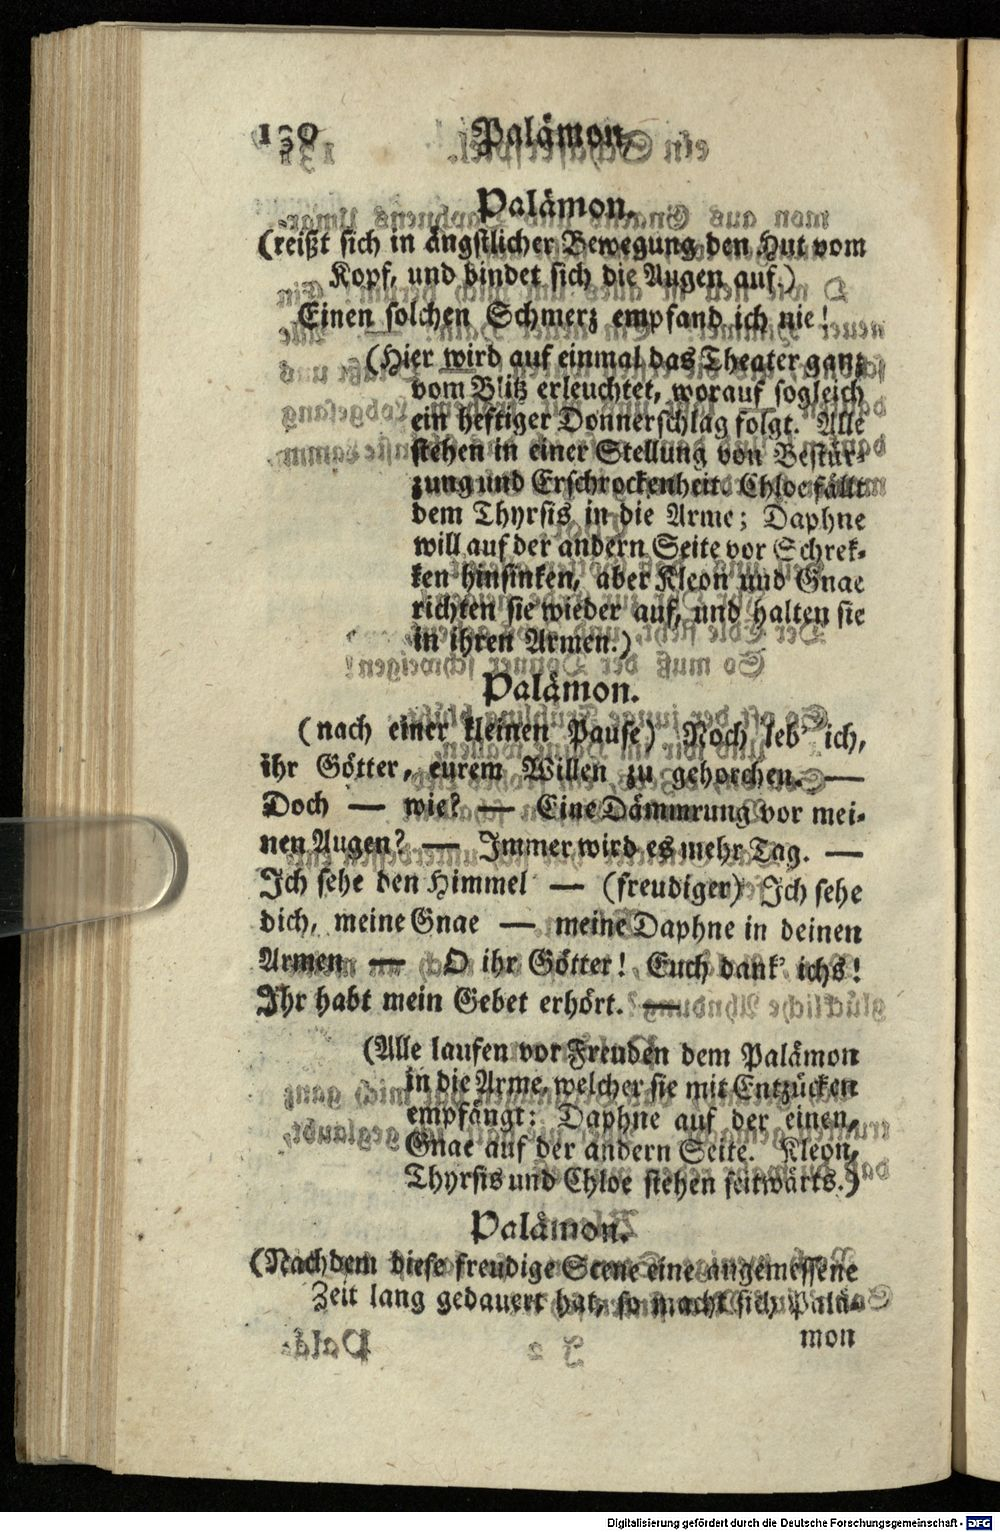 130 Palämon,
Palämon.
(reißt sich in ängstlicher Bewegung den Hut vom
Kopf, und bindet sich die Augen auf.)
Einen solchen Schmerz empfand ich nie!
(Hier wird auf einmal das Theater ganz
vom Blitz erleuchtet, worauf sogleich
ein heftiger Donnerschlag folgt. Alle
stehen in einer Stellung von Bestür-
zung und Erschrockenheit. Chloe fällt
dem Thyrsis in die Arme; Daphne
will auf der andern Seite vor Schrek-
ken hinsinken, aber Kleon und Gnae
richten sie wieder auf, und halten sie
in ihren Armen.)
Palämon.
(nach einer kleinen Pause) Noch leb' ich,
ihr Götter, eurem Willen zu gehorchen. —
Doch — wie? — Eine Dämmrung vor mei-
nen Augen? — Immer wird es mehr Tag. —
Ich sehe den Himmel — (freudiger) Ich sehe
dich, meine Gnae — meine Daphne in deinen
Armen — O ihr Götter! Euch dank' ichs!
Ihr habt mein Gebet erhört. —
(Alle laufen vor Freuden dem Palämon
in die Arme, welcher sie mit Entzücken
empfängt: Daphne auf der einen,
Gnae auf der andern Seite. Kleon,
Thyrsis und Chloe stehen seitwärts.)
Palämon.
(Nachdem diese freudige Scene eine angemessene
Zeit lang gedauert hat, so macht sich Palä-
mon
Digitalisierung gefördert durch die Deutsche Forschungsgemeinschaft - DFG